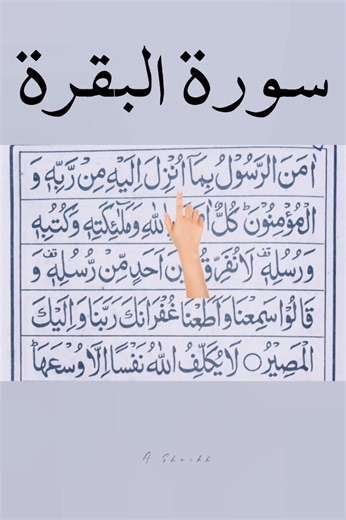 سورة البقرة
اٰمَنَ الرَّسُوْلُ بِمَاۤ اُنْزِلَ اِلَيْهِ مِنْ رَّبِّهٖ وَ
الْمُؤْمِنُوْنَ ؕ كُلٌّ اللّٰهِ وَمَلٰٓئِكَتِهٖ وَكُتُبِهٖ
وَرُسُلِهٖ ۫ لَا نُفَرِّقُ اَحَدٍ مِّنْ رُّسُلِهٖ ۫ وَ
قَالُوْا سَمِعْنَا وَاَطَعْنَا غُفْرَانَكَ رَبَّنَا وَاِلَيْكَ
الْمَصِيْرُ ○ لَا يُكَلِّفُ اللّٰهُ نَفْسًا اِلَّا وُسْعَهَا ؕ
A Shaikh